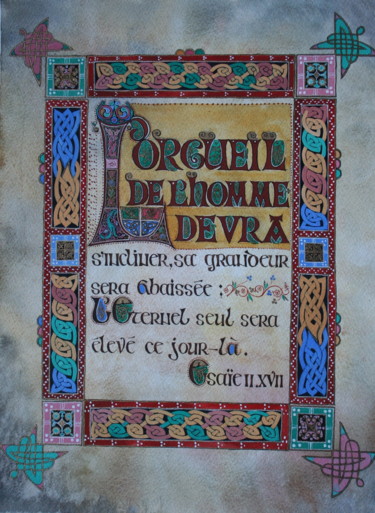 L'ORGUEIL
DE L'HOMME
DEVRA
s'incliner, sa grandeur
sera abaissée ;
L'Eternel seul sera
élevé ce jour-là.
Esaïe II.XVII